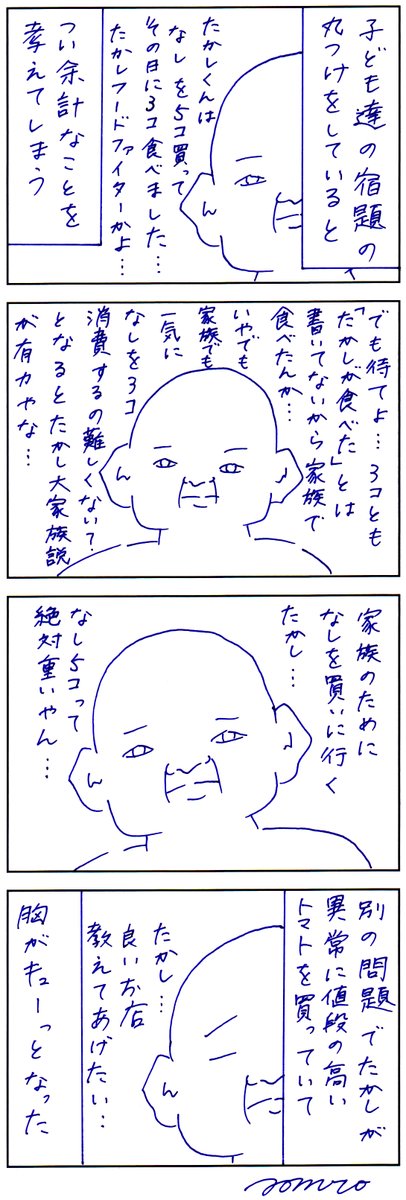 子ども達の宿題の
丸つけをしていると
たかしくんは
なしを5コ買って
その日に3コ食べました…
たかしフードファイターかよ…
つい余計なことを
考えてしまう
でも待てよ…3コとも
「たかしが食べた」とは
書いてないから家族で
食べたんか…
いやでも
家族でも
一気に
なしを3コ
消費するの難しくない?
となるとたかし大家族説
が有力やな…
家族のために
なしを買いに行く
たかし…
なし5コって
絶対重いやん…
別の問題でたかしが
異常に値段の高い
トマトを買っていて
たかし…
良いお店
教えてあげたい…
胸がキューっとなった